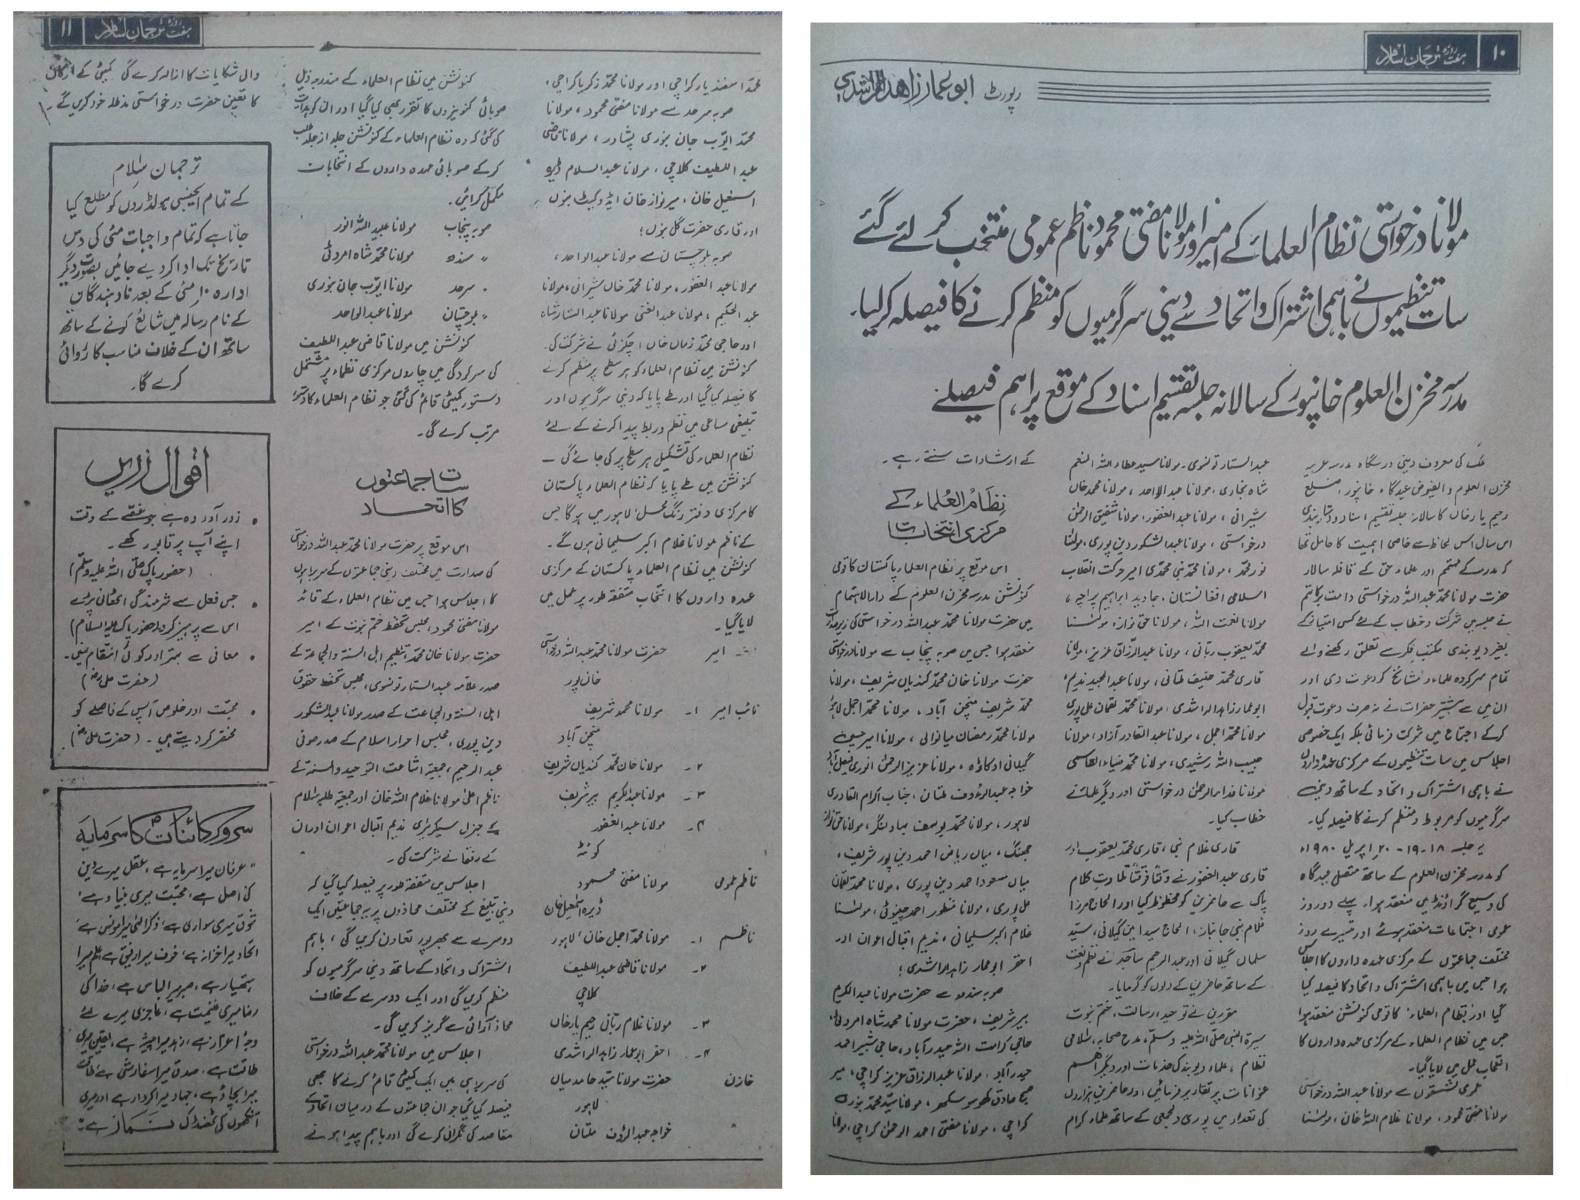 ۱۰ ہفت روزہ ترجمان اسلام
رپورٹ ابوعمار زاهد الراشدی
مولانا درخواستی نظام العلماء کے امیر اور مولانا مفتی محمود ناظم عمومی منتخب کر لئے گئے
سات تنظیموں نے باہمی اشتراک و اتحاد سے دینی سرگرمیوں کو منظم کرنے کا فیصلہ کر لیا۔
مدرسہ مخزن العلوم خانپور کے سالانہ جلسہ تقسیم اسناد کے موقع پر اہم فیصلے
ملک کی معروف دینی درسگاہ مدرسہ عربیہ
مخزن العلوم والفیوض عیدگاہ خانپور، ضلع
رحیم یار خاں کا سالانہ جلسہ تقسیم اسناد و دستاربندی
اس سال اس لحاظ سے خاصی اہمیت کا حامل تھا
کہ مدرسہ کے مہتمم اور علماء حق کے قافلہ سالار
حضرت مولانا محمد عبداللہ درخواستی دامت برکاتہم
نے جلسہ میں شرکت و خطاب کے لئے کسی امتیاز کے
بغیر دیوبندی مکتب فکر سے تعلق رکھنے والے
تمام سرکردہ علماء و مشائخ کو دعوت دی اور
ان میں سے بیشتر حضرات نے نہ صرف دعوت قبول
کرکے اجتماع میں شرکت فرمائی بلکہ ایک خصوصی
اجلاس میں سات تنظیموں کے مرکزی عہدہ داروں
نے باہمی اشتراک و اتحاد کے ساتھ دینی
سرگرمیوں کو مربوط و منظم کرنے کا فیصلہ کیا۔
یہ جلسہ ۱۸۔۱۹۔۲۰ اپریل ۱۹۸۰ء
کو مدرسہ مخزن العلوم کے ساتھ متصل عیدگاہ
کی وسیع گراؤنڈ میں منعقد ہوا۔ پہلے دو روز
عمومی اجتماعات منعقد ہوئے اور تیسرے روز
مختلف جماعتوں کے مرکزی عہدہ داروں کا اجلاس
ہوا جس میں باہمی اشتراک و اتحاد کا فیصلہ کیا
گیا اور نظام العلماء کا قومی کنونشن منعقد ہوا
جس میں نظام العلماء کے مرکزی عہدہ داروں کا
انتخاب عمل میں لایا گیا۔
عمومی نشستوں سے مولانا عبداللہ درخواستی
مولانا مفتی محمود، مولانا غلام اللہ خان، مولانا
عبدالستار تونسوی۔ مولانا سید عطاء اللہ المنعم
شاہ بخاری، مولانا عبدالاحد، مولانا محمد خاں
شیرانی، مولانا عبدالغفور، مولانا شفیق الرحمٰن
درخواستی، مولانا عبدالشکور دین پوری، مولانا
نور محمد، مولانا محمد نبی محمدی امیر حرکت انقلاب
اسلامی افغانستان، جاوید ابراہیم پراچہ،
مولانا نعمت اللہ، مولانا حق نواز، مولانا
محمد یعقوب ربانی، مولانا عبدالرزاق عزیز، مولانا
قاری محمد حنیف ملتانی، مولانا عبدالمجید ندیم
ابوعمار زاہد الراشدی، مولانا محمد لقمان علی پوری
مولانا محمد اجمل، مولانا عبدالقادر آزاد، مولانا
حبیب اللہ رشیدی، مولانا محمد ضیاء القاسمی
مولانا فداء الرحمٰن درخواستی اور دیگر علماء نے
خطاب کیا۔
قاری غلام نبی، قاری محمد یعقوب اور
قاری عبدالغفور نے وقتاً فوقتاً تلاوت کلام
پاک سے حاضرین کو محظوظ کیا اور الحاج مرزا
غلام نبی جانباز، الحاج سید امین گیلانی، سید
سلمان گیلانی اور عبدالرحیم ساجد نے نظم و نعت
کے ساتھ حاضرین کے دلوں کو گرمایا۔
مقررین نے توحید، رسالت، ختم نبوت
سیرۃ النبی صلی اللہ علیہ وسلم، مدح صحابہ، اسلامی
نظام، علماء دیوبند کی خدمات اور دیگر اہم
عنوانات پر تقاریر فرمائیں، اور حاضرین ہزاروں
کی تعداد میں پوری دلجمعی کے ساتھ علماء کرام
کے ارشادات سنتے رہے۔
نظام العلماء کے
مرکزی انتخابات
اس موقع پر نظام العلماء پاکستان کا قومی
کنونشن مدرسہ مخزن العلوم کے دارالاہتمام
میں حضرت مولانا محمد عبداللہ درخواستی کی زیر صدارت
منعقد ہوا جس میں صوبہ پنجاب سے مولانا درخواستی
حضرت مولانا خان محمد کندیاں شریف، مولانا
محمد شریف منچن آباد، مولانا محمد اجمل لاہور
مولانا محمد رمضان میانوالی، مولانا امیر حسین
گیلانی اوکاڑہ، مولانا عزیز الرحمٰن انوری فیصل آباد
خواجہ عبدالرؤف ملتان، جناب اکرام القادری
لاہور، مولانا محمد یوسف بہاولنگر، مولانا حق نواز
جھنگ، میاں ریاض احمد دین پور شریف،
میاں مسعود احمد دین پوری، مولانا محمد لقمان
علی پوری، مولانا منظور احمد چنیوٹی، مولانا
غلام اکبر سلیمانی، ندیم اقبال اعوان اور
احقر ابوعمار زاہد الراشدی؛
صوبہ سندھ سے حضرت مولانا عبدالکریم
بیرشریف، حضرت مولانا محمد شاہ امروٹی،
حاجی کرامت اللہ حیدرآباد، حاجی شبیر احمد
حیدرآباد، مولانا عبدالرزاق عزیز کراچی، میر
صادق کھوسو سکھر، مولانا سید محمد بنوری
کراچی، مولانا مفتی احمد الرحمٰن کراچی، مولانا
ہفت روزہ ترجمان اسلام ۱۱
محمد اسفندیار کراچی اور مولانا محمد زکریا کراچی،
صوبہ سرحد سے مولانا مفتی محمود، مولانا
محمد ایوب جان بنوری پشاور، مولانا قاضی
عبداللطیف کلاچی، مولانا عبدالسلام ڈیرہ
اسمٰعیل خان، میر نواز خان ایڈووکیٹ بنوں
اور قاری حضرت گل بنوں؛
صوبہ بلوچستان سے مولانا عبدالواحد،
مولانا عبدالغفور، مولانا محمد خاں شیرانی، مولانا
عبدالحکیم، مولانا عبدالغنی مولانا عبدالستار شاہ
اور حاجی محمد زمان خاں اچکزئی نے شرکت کی۔
کنونشن میں نظام العلماء کو ہر سطح پر منظم کرنے
کا فیصلہ کیا گیا اور طے پایا کہ دینی سرگرمیوں اور
تبلیغی مساعی میں نظم و ربط پیدا کرنے کے لئے
نظام العلماء کی تشکیل ہر سطح پر کی جائے گی ۔
کنونشن میں طے پایا کہ نظام العلماء پاکستان
کا مرکزی دفتر رنگ محل لاہور میں ہوگا جس
کے ناظم مولانا غلام اکبر سلیمانی ہوں گے۔
کنونشن میں نظام العلماء پاکستان کے مرکزی
عہدہ داروں کا انتخاب متفقہ طور پر عمل میں
لایا گیا۔
امیر حضرت مولانا محمد عبداللہ درخواستی
خان پور
نائب امیر ۱۔ مولانا محمد شریف
منچن آباد
۲۔ مولانا خان محمد کندیاں شریف
۳۔ مولانا عبدالکریم بیرشریف
۴۔ مولانا عبدالغفور
کوئٹہ
ناظم عمومی مولانا مفتی محمود
ڈیرہ اسمٰعیل خان
ناظم ۱۔ مولانا محمد اجمل خان، لاہور
۲۔ مولانا قاضی عبداللطیف
کلاچی
۳۔ مولانا غلام ربانی رحیم یار خاں
۴۔ احقر ابوعمار زاہد الراشدی
خازن حضرت مولانا سید حامد میاں
لاہور
خواجہ عبدالرؤف ملتان
کنونشن میں نظام العلماء کے مندرجہ ذیل
صوبائی کنوینروں کا تقرر بھی کیا گیا اور ان کو ہدایت
کی گئی کہ وہ نظام العلماء کے کنونشن جلد از جلد طلب
کرکے صوبائی عہدہ داروں کے انتخابات
مکمل کرائیں۔
صوبہ پنجاب مولانا عبیداللہ انور
" سندھ مولانا محمد شاہ امروٹی
" سرحد مولانا ایوب جان بنوری
" بلوچستان مولانا عبدالواحد
کنونشن میں مولانا قاضی عبداللطیف
کی سرکردگی میں چاروں مرکزی نظماء پر مشتمل
دستور کمیٹی قائم کی گئی جو نظام العلماء کا دستور
مرتب کرے گی۔
سات جماعتوں
کا اتحاد
اس موقع پر حضرت مولانا محمد عبداللہ درخواستی
کی صدارت میں مختلف دینی جماعتوں کے سربراہوں
کا اجلاس ہوا جس میں نظام العلماء کے قائد
مولانا مفتی محمود، مجلس تحفظ ختم نبوت کے امیر
حضرت مولانا خان محمد، تنظیم اہل السنۃ والجماعۃ کے
صدر علامہ عبدالستار تونسوی، مجلس تحفظ حقوق
اہل السنۃ والجماعت کے صدر مولانا عبدالشکور
دین پوری، مجلس احرار اسلام کے صدر صوفی
عبدالرحیم، جمعیۃ اشاعت التوحید والسنۃ کے
ناظم اعلیٰ مولانا غلام اللہ خان اور جمعیۃ طلبہ اسلام
کے جنرل سیکرٹری ندیم اقبال اعوان اور ان
کے رفقاء نے شرکت کی۔
اجلاس میں متفقہ طور پر فیصلہ کیا گیا کہ
دینی تبلیغ کے مختلف محاذوں پر یہ جماعتیں ایک
دوسرے سے بھرپور تعاون کریں گی، باہم
اشتراک و اتحاد کے ساتھ دینی سرگرمیوں کو
منظم کریں گی اور ایک دوسرے کے خلاف
محاذ آرائی سے گریز کریں گی۔
اجلاس میں مولانا محمد عبداللہ درخواستی
کی سربراہی میں ایک کمیٹی قائم کرنے کا بھی
فیصلہ کیا گیا جو ان جماعتوں کے درمیان اتحاد کے
مقاصد کی نگرانی کرے گی اور باہم پیدا ہونے
والی شکایات کا ازالہ کرے گی کمیٹی کے ارکان
کا تعین حضرت درخواستی مدظلہ خود کریں گے۔
ترجمان اسلام
کے تمام ایجنسی ہولڈروں کو مطلع کیا
جاتا ہے کہ تمام واجبات مئی کی دس
تاریخ تک ادا کر دیے جائیں بصورت دیگر
ادارہ ۱۰ مئی کے بعد نادہندگان
کے نام رسالہ میں شائع کرنے کے ساتھ
ساتھ ان کے خلاف مناسب کاروائی
کرے گا۔
اقوال زریں
• زور آور وہ ہے جو غصے کے وقت
اپنے آپ پر قابو رکھے۔
(حضور پاک صلی اللہ علیہ وسلم)
• جس فعل سے شرمندگی اٹھانی پڑے
اس سے پرہیز کرو (حضور پاک علیہ السلام)
• معافی سے بہتر اور کوئی انتقام نہیں۔
(حضرت علیؓ)
• محبت اور خلوص آپس کے فاصلے کو
مختصر کر دیتے ہیں۔ (حضرت علیؓ)
سرور کائناتؐ کا سرمایہ
"عرفان میرا سرمایہ ہے، عقل میرے دین
کی اصل ہے، محبت میری بنیاد ہے،
شوق میری سواری ہے، ذکر الٰہی میرا مونس ہے،
اعتماد میرا خزانہ ہے، خوف میرا رفیق ہے، علم میرا
ہتھیار ہے، صبر میرا لباس ہے، خدا کی
رضا میری غنیمت ہے، عاجزی میرے لئے
وجہ اعزاز ہے، زہد میرا پیشہ ہے، یقین میری
طاقت ہے، صدق میرا سفارشی ہے، طاعت
میرا بچاؤ ہے، جہاد میرا کردار ہے اور میری
آنکھوں کی ٹھنڈک نماز ہے"